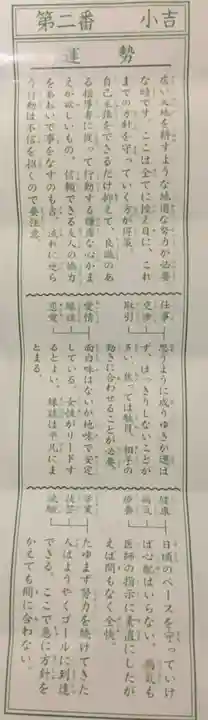 第二番 小吉
運勢
広い大地を耕すような地道な努力が必要
な時です。ここは全てに控え目に、これ
までの方針を守っているのが得策。
自己主張をできるだけ抑えて、良識のあ
る指導者に従って行動する謙虚な心がま
えが欲しいもの。信頼できる友人の協力
をあおいで事をなすのも吉。流れに逆ら
う行動は不信を招くので要注意。
仕事
交渉
取引
思うように成りゆきが運ば
ず、はっきりしないことが
多い。焦っては駄目。相手の
動きに合わせることが必要。
愛情
縁談
恋愛
面白味はないが地味で安定
している。女性がリードす
るとよい。縁談は平凡にま
とまる。
健康
病気
療養
日頃のペースを守っていけ
ば心配はいらない。病気も
医師の指示に素直にしたが
えば間もなく全快。
学業
技芸
就職
たゆまず努力を続けてきた
人はようやくゴールに到達
できる。ここで急に方針を
かえても間に合わない。